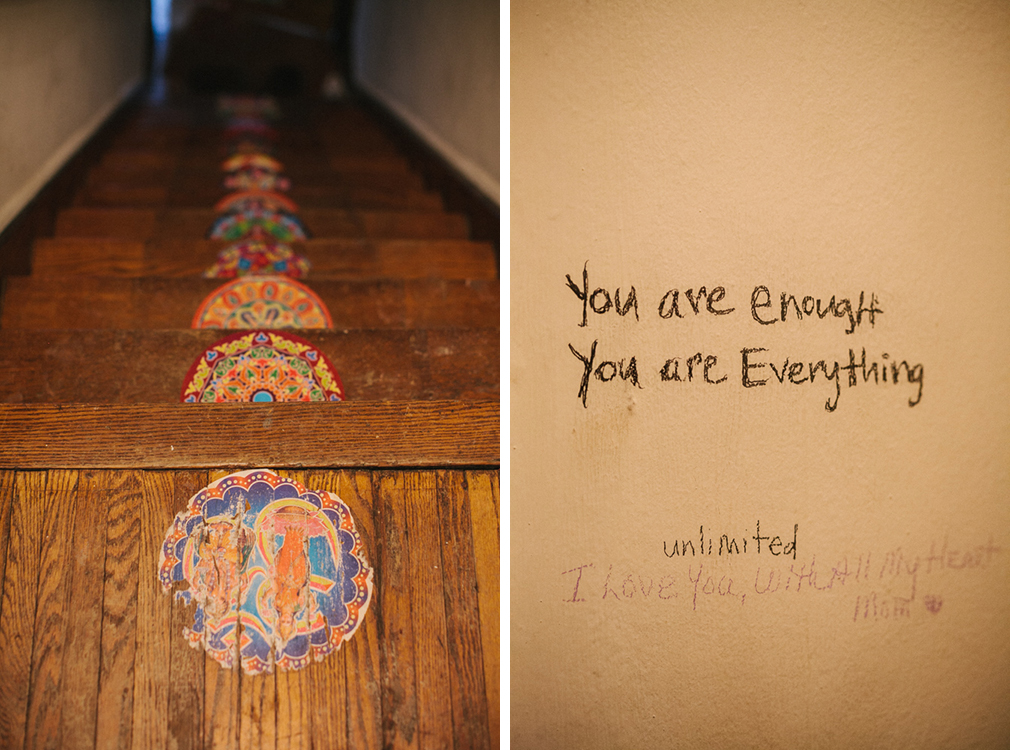 You are enough
You are Everything
unlimited
I Love You, With All My Heart
Mom